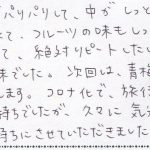 パリパリして、中がしっと
て、フルーツの味もしっ
て、絶対リピートしたい
味でした。次回は、青梅
します。コロナ化で、旅行
持ちでしたが、久々に気分
持ちにさせていただきました